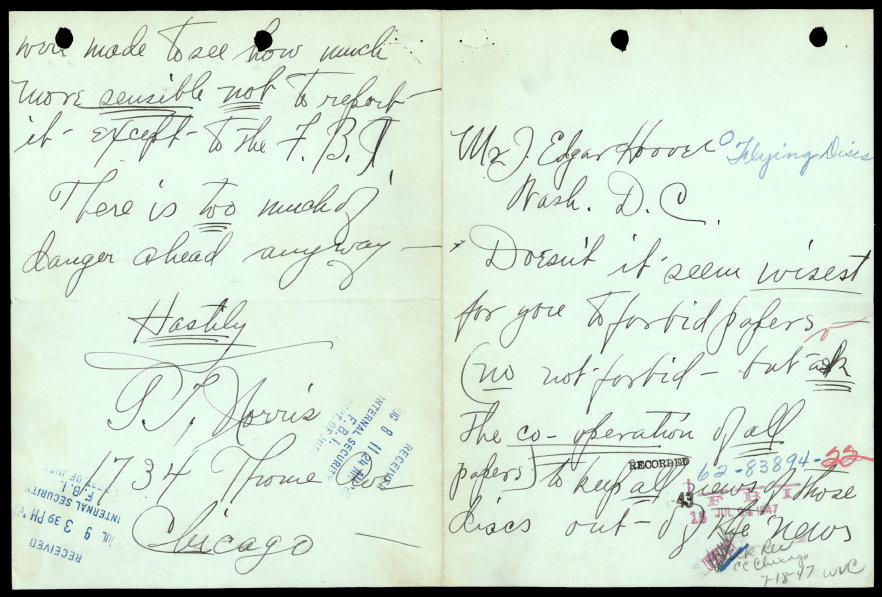 Mr J. Edgar Hoover
Flying Discs
Wash. D.C.
Doesn't it seem wisest
for you to forbid papers -
(no not forbid - but ask
the co-operation of all
papers) to keep all news of those
discs out of the news
RECORDED
43
62-83894-22
F B I
JUL 1947
CC Chicago
7-18-47 WVC
were made to see how much
more sensible not to report
it - except to the F.B.I
There is too much of
danger ahead anyway -
Hastily
T. Norris
1734 Thome Ave
Chicago -
RECEIVED
8 11 24 AM
INTERNAL SECURITY
F.B.I.
DEPT OF JUSTICE
RECEIVED
JUL 9 3 39 PM
INTERNAL SECURITY
F.B.I.
DEPT OF JUSTICE